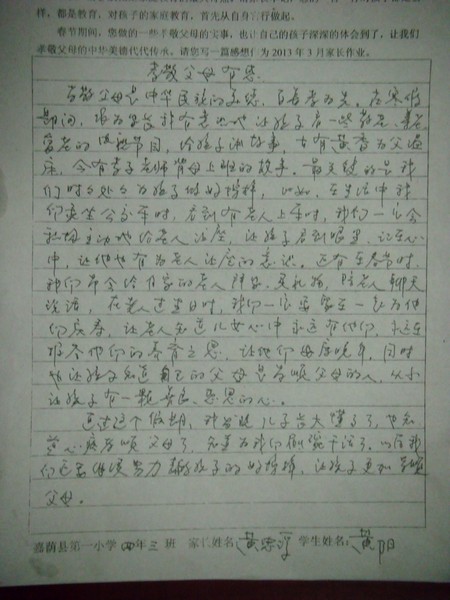 样，都是教育，对孩子的家庭教育，首先从自身言行做起。
春节期间，您做的一些孝敬父母的实事，也让自己的孩子深深的体会到了，让我们
孝敬父母的中华美德代代传承，请您写一篇感悟作为2013年3月家长作业。
孝敬父母有感
孝敬父母是中华民族的美德，百善孝为先。在寒假
期间，作为家长针有意地让孩子看一些敬老、
爱老的节目，给孩子讲故事，古有黄香为父温
床，今有孝子老师背母上班的故事。最关键的是我
们时时处处为孩子做好榜样，比如，在生活中我
们乘坐公交车时，看到有老人上车时，我们一定会
主动地给老人让座，让孩子看到眼里，记在心
中，让他也有为老人让座的意识。还有在春节时，
我们都会给自家的老人拜年、买礼物，陪老人聊天
谈话，在老人过生日时，我们一家要在一起为他
们庆寿，让老人知道儿女心中永远有他们，永远在
报答他们的养育之恩，让他们安度晚年，同时
也让孩子知道自己的父母是孝顺父母的人，从小
让孩子有一颗善良、感恩的心。
通过这个假期，我发现儿子长大懂事了，也知
道心疼孝顺父母了，知道为我们做家务干活了。以后我
们还要继续努力做孩子的好榜样，让孩子更加孝顺
父母。
嘉荫县第一小学四年三班 家长姓名： 学生姓名：黄阳